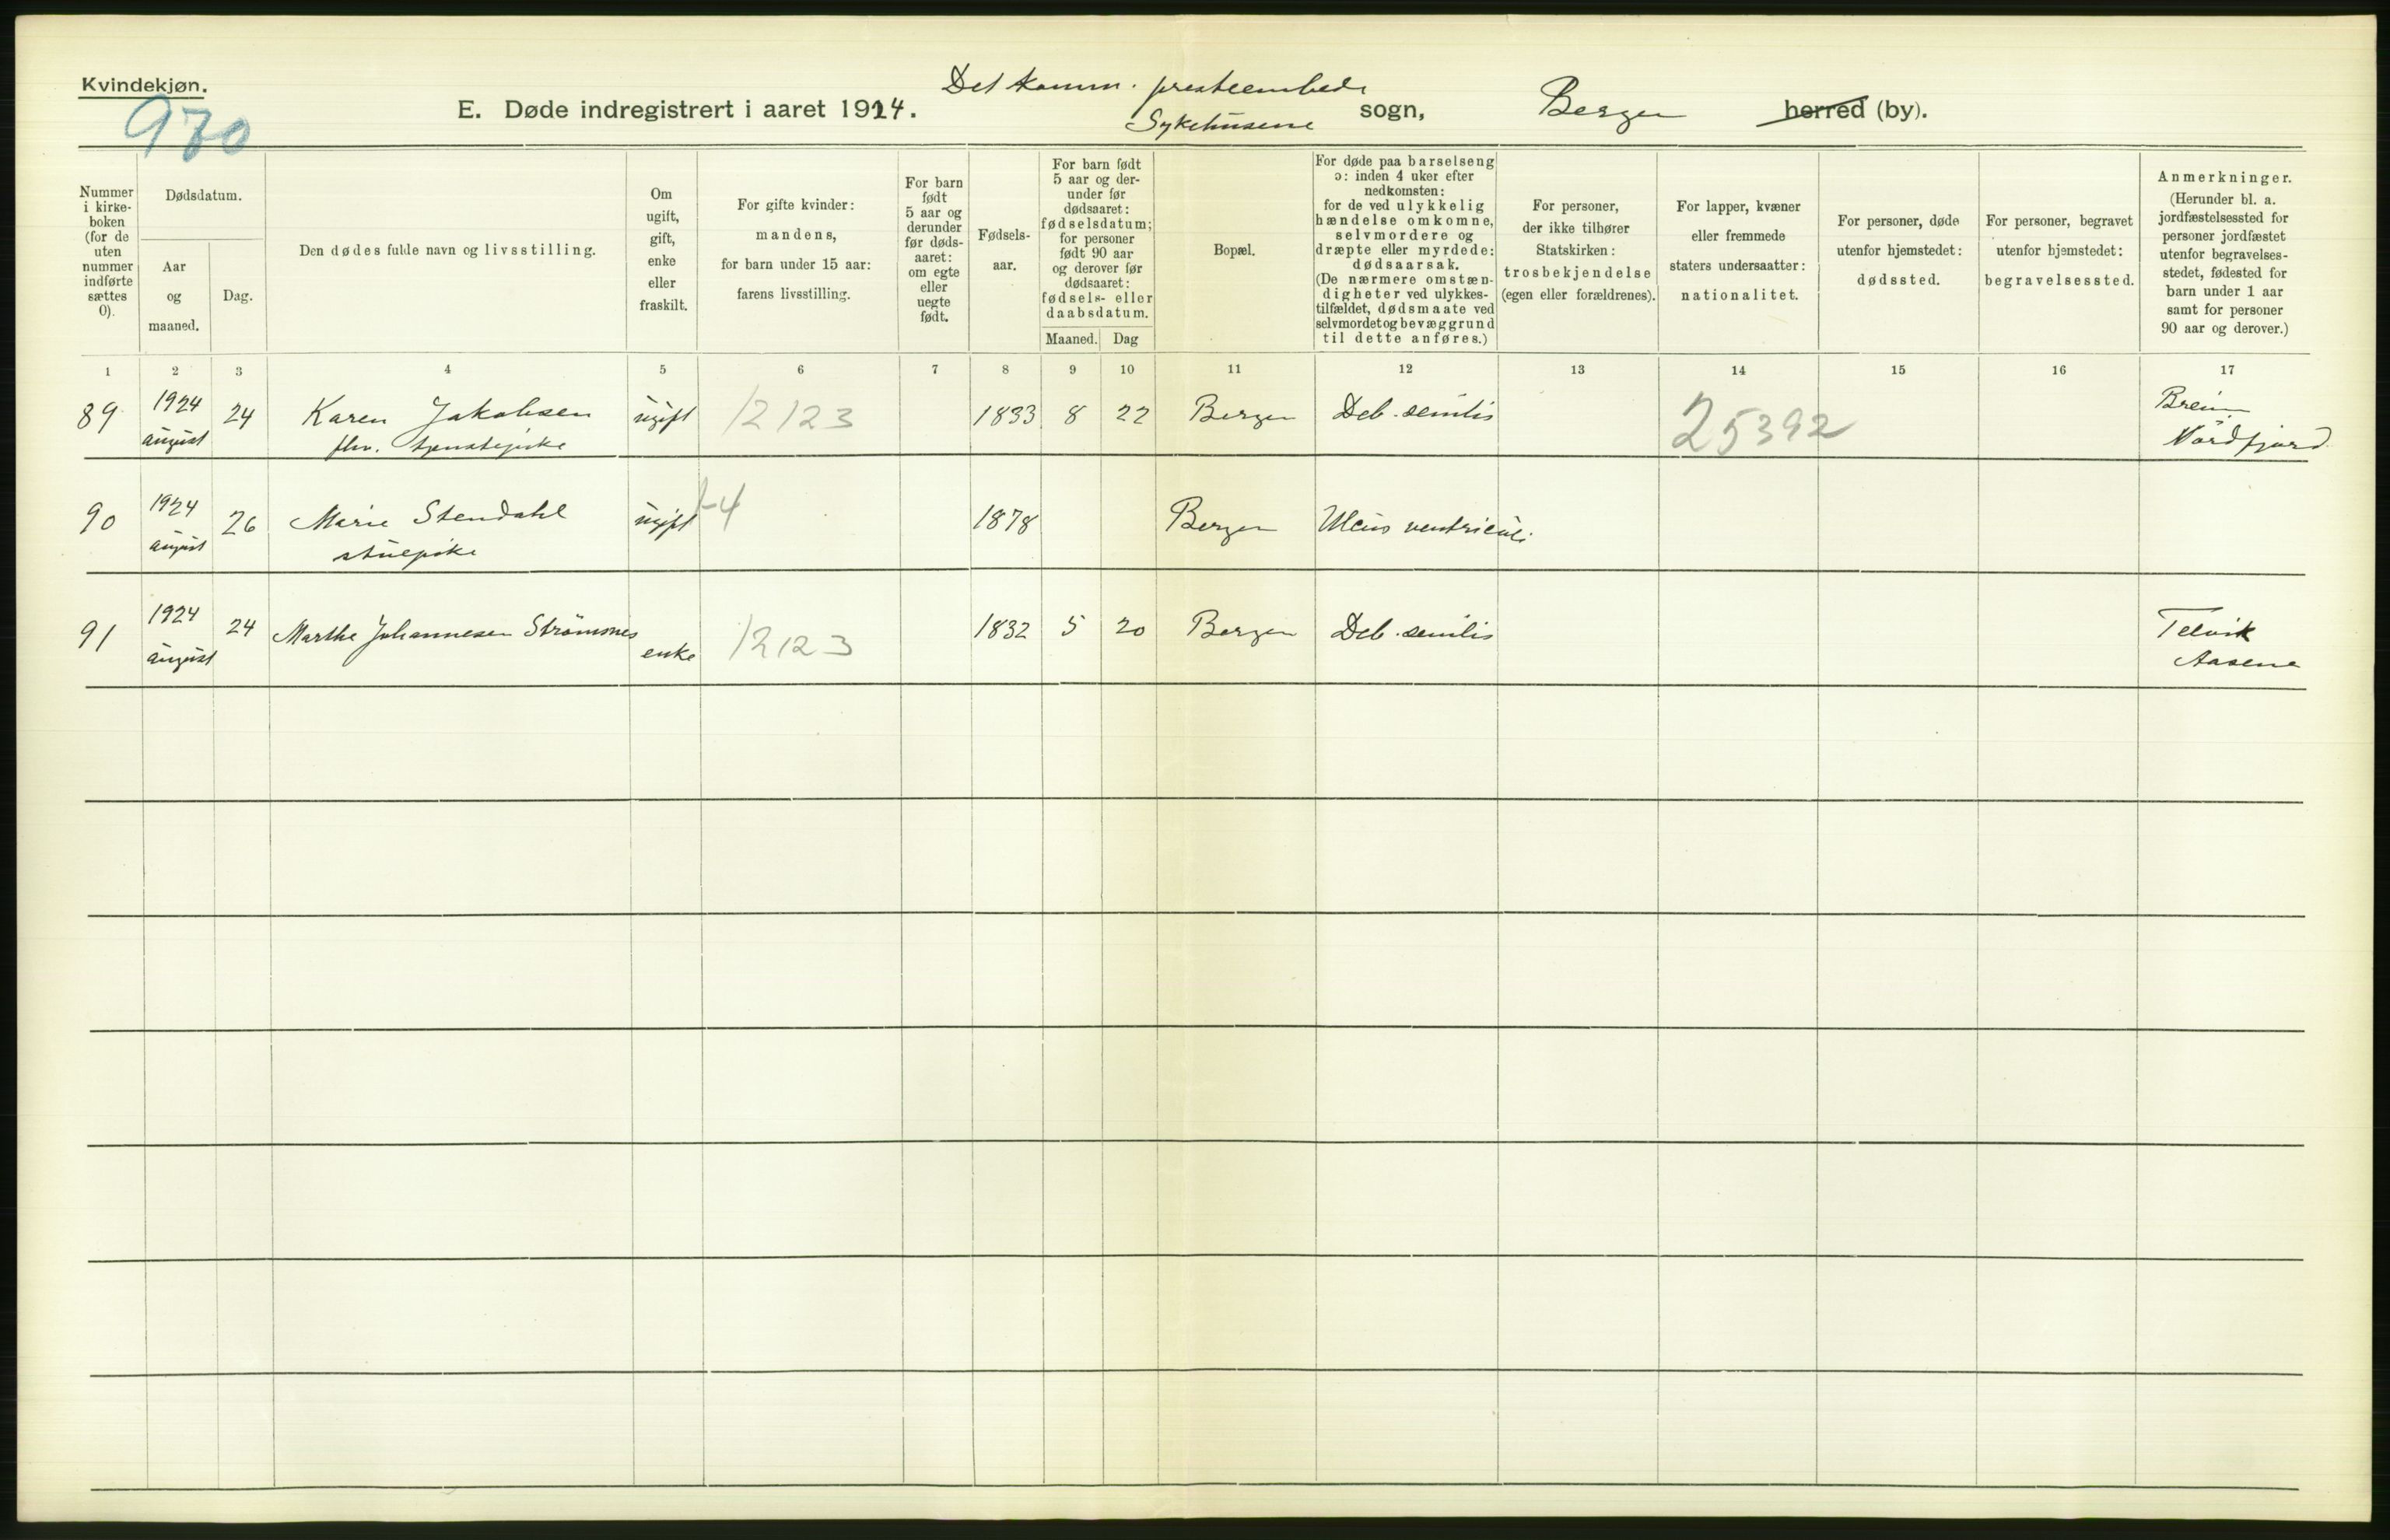 Kvindekjøn.
970
E. Døde indregistrert i aaret 1924.
Det komm. presteembede
Sykehusene sogn,
Bergen herred (by).
Nummer i kirkeboken (for de uten nummer indførte sættes 0).
Dødsdatum.
Aar og maaned.
Dag.
Den dødes fulde navn og livsstilling.
Om ugift, gift, enke eller fraskilt.
For gifte kvinder: mandens, for barn under 15 aar: farens livsstilling.
For barn født 5 aar og derunder før dødsaaret: om egte eller uegte født.
Fødselsaar.
For barn født 5 aar og derunder før dødsaaret: fødselsdatum; for personer født 90 aar og derover før dødsaaret: fødsels- eller daabsdatum.
Maaned. Dag
Bopæl.
For døde paa barselseng ɔ: inden 4 uker efter nedkomsten: for de ved ulykkelig hændelse omkomne, selvmordere og dræpte eller myrdede: dødsaarsak. (De nærmere omstændigheter ved ulykkestilfældet, dødsmaate ved selvmordet og bevæggrund til dette anføres.)
For personer, der ikke tilhører Statskirken: trosbekjendelse (egen eller forældrenes).
For lapper, kvæner eller fremmede staters undersaatter: nationalitet.
For personer, døde utenfor hjemstedet: dødssted.
For personer, begravet utenfor hjemstedet: begravelsessted.
Anmerkninger. (Herunder bl. a. jordfæstelsessted for personer jordfæstet utenfor begravelsesstedet, fødested for barn under 1 aar samt for personer 90 aar og derover.)
1 2 3 4 5 6 7 8 9 10 11 12 13 14 15 16 17
89 1924 august 24 Karen Jakobsen ugift 12123 1833 8 22 Bergen Deb. senilis 25392 Breim
fhv. tjenstepike Nordfjord
90 1924 august 26 Marie Stendahl ugift 1878 Bergen Ulcus ventriculi
stuepike
91 1924 august 24 Marthe Johannesen Strömsnes enke 12123 1832 5 20 Bergen Deb. senilis
Aasene